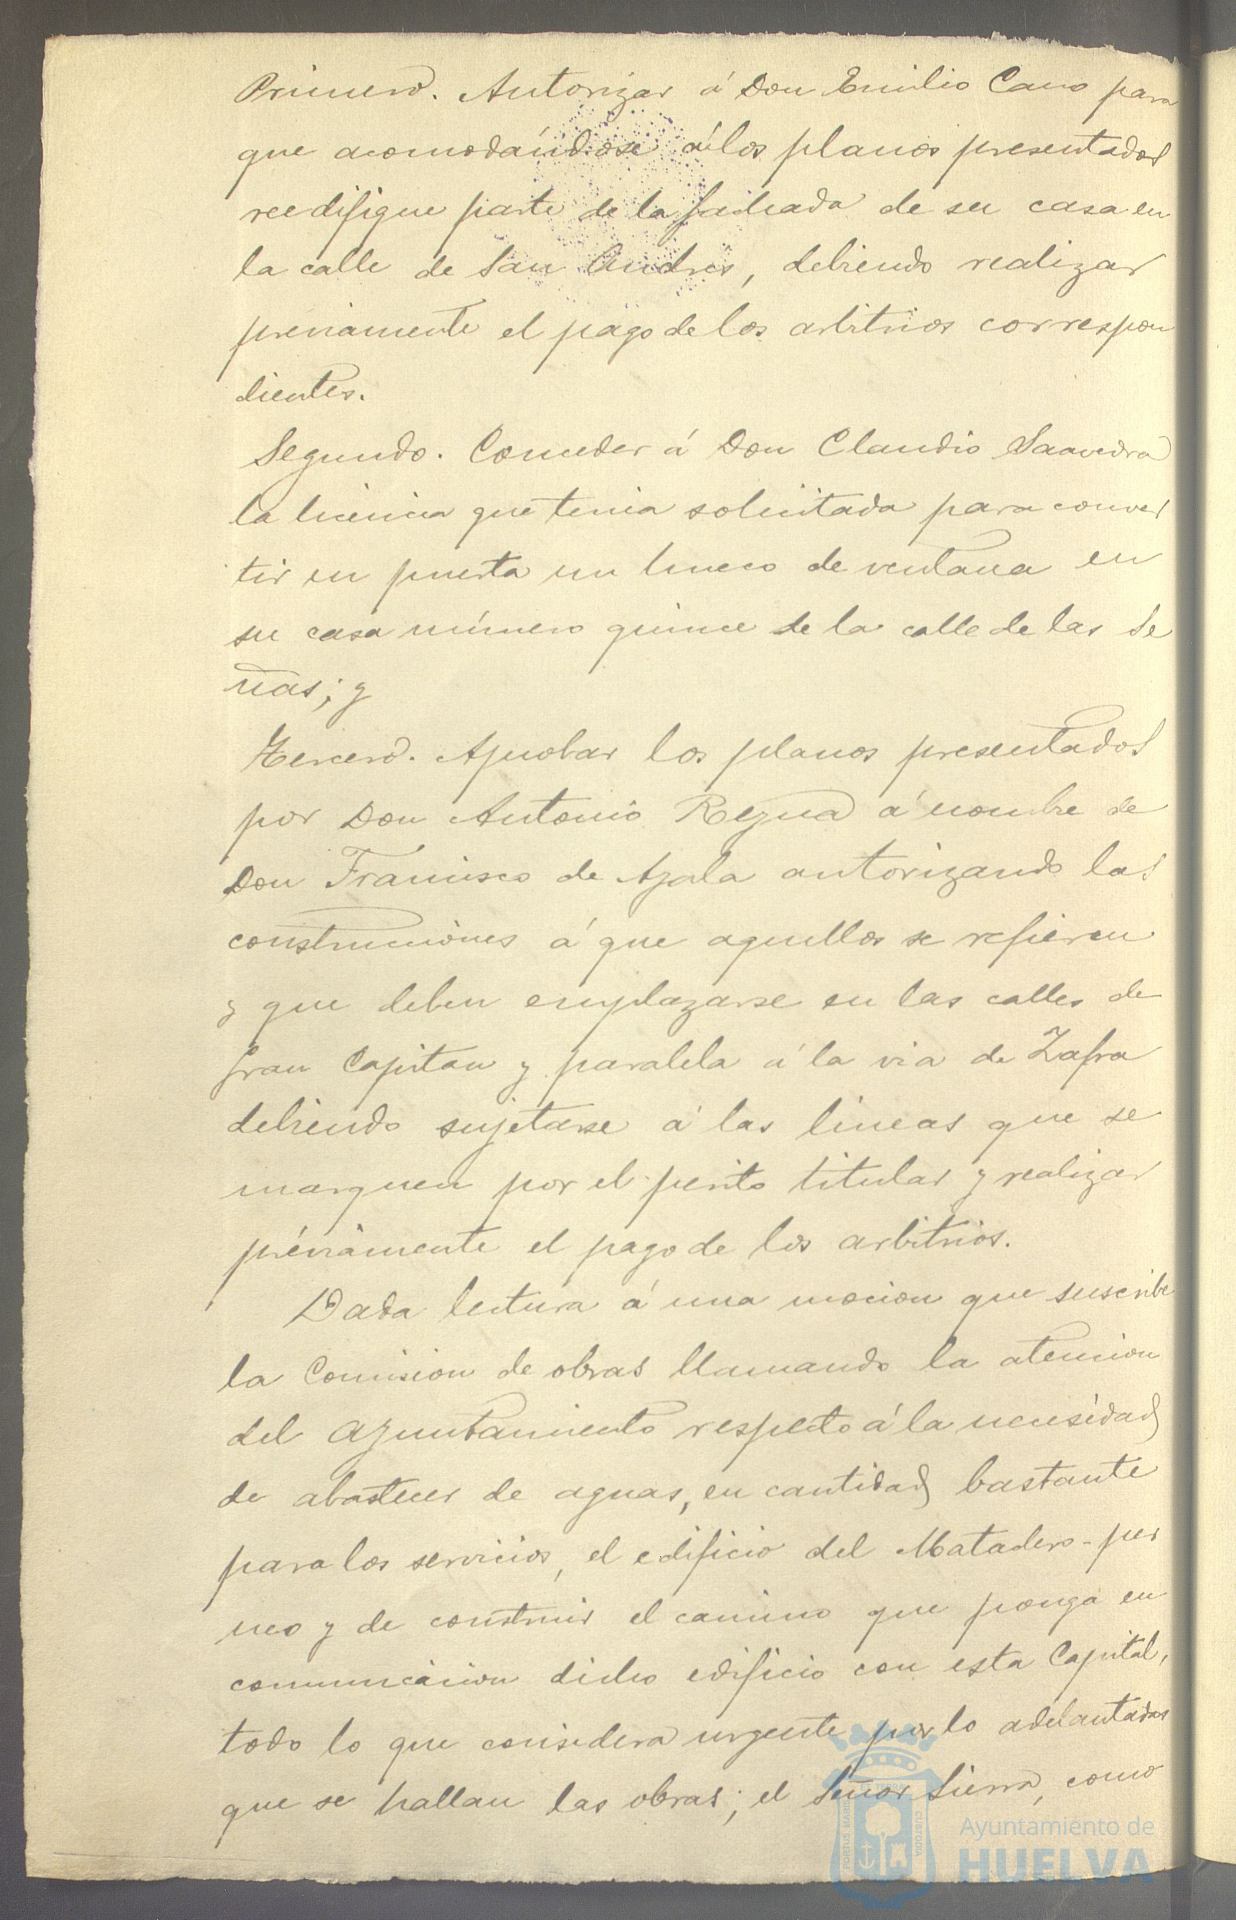 Primero. Autorizar á Don Emilio Cano para
que acomodándose á los planos presentados
reedifique parte de la fachada de su casa en
la calle de San Andrés, debiendo realizar
previamente el pago de los arbitrios correspon
dientes.
Segundo. Conceder á Don Claudio Saavedra
la licencia que tenia solicitada para conver
tir en puerta un hueco de ventana en
su casa número quince de la calle de las Se
ñas; y
Tercero. Aprobar los planos presentados
por Don Antonio á nombre de
Don Francisco de Ayala autorizando las
construcciones á que aquellos se refieren
y que deben emplazarse en las calles de
Gran Capitan y paralela á la via de Zafra
debiendo sujetarse á las lineas que se
marquen por el perito titular y realizar
préviamente el pago de los arbitrios.
Dada lectura á una mocion que suscribe
la Comision de obras llamando la atencion
del Ayuntamiento respecto á la necesidad
de abastecer de aguas, en cantidad bastante
para los servicios, el edificio del Matadero-per
neo y de construir el camino que ponga en
comunicacion dicho edificio con esta Capital,
todo lo que considera urgente por lo adelantadas
que se hallan las obras; el Señor Sierra, como
PORTUS MARIS CUSTODIA
Ayuntamiento de
HUELVA